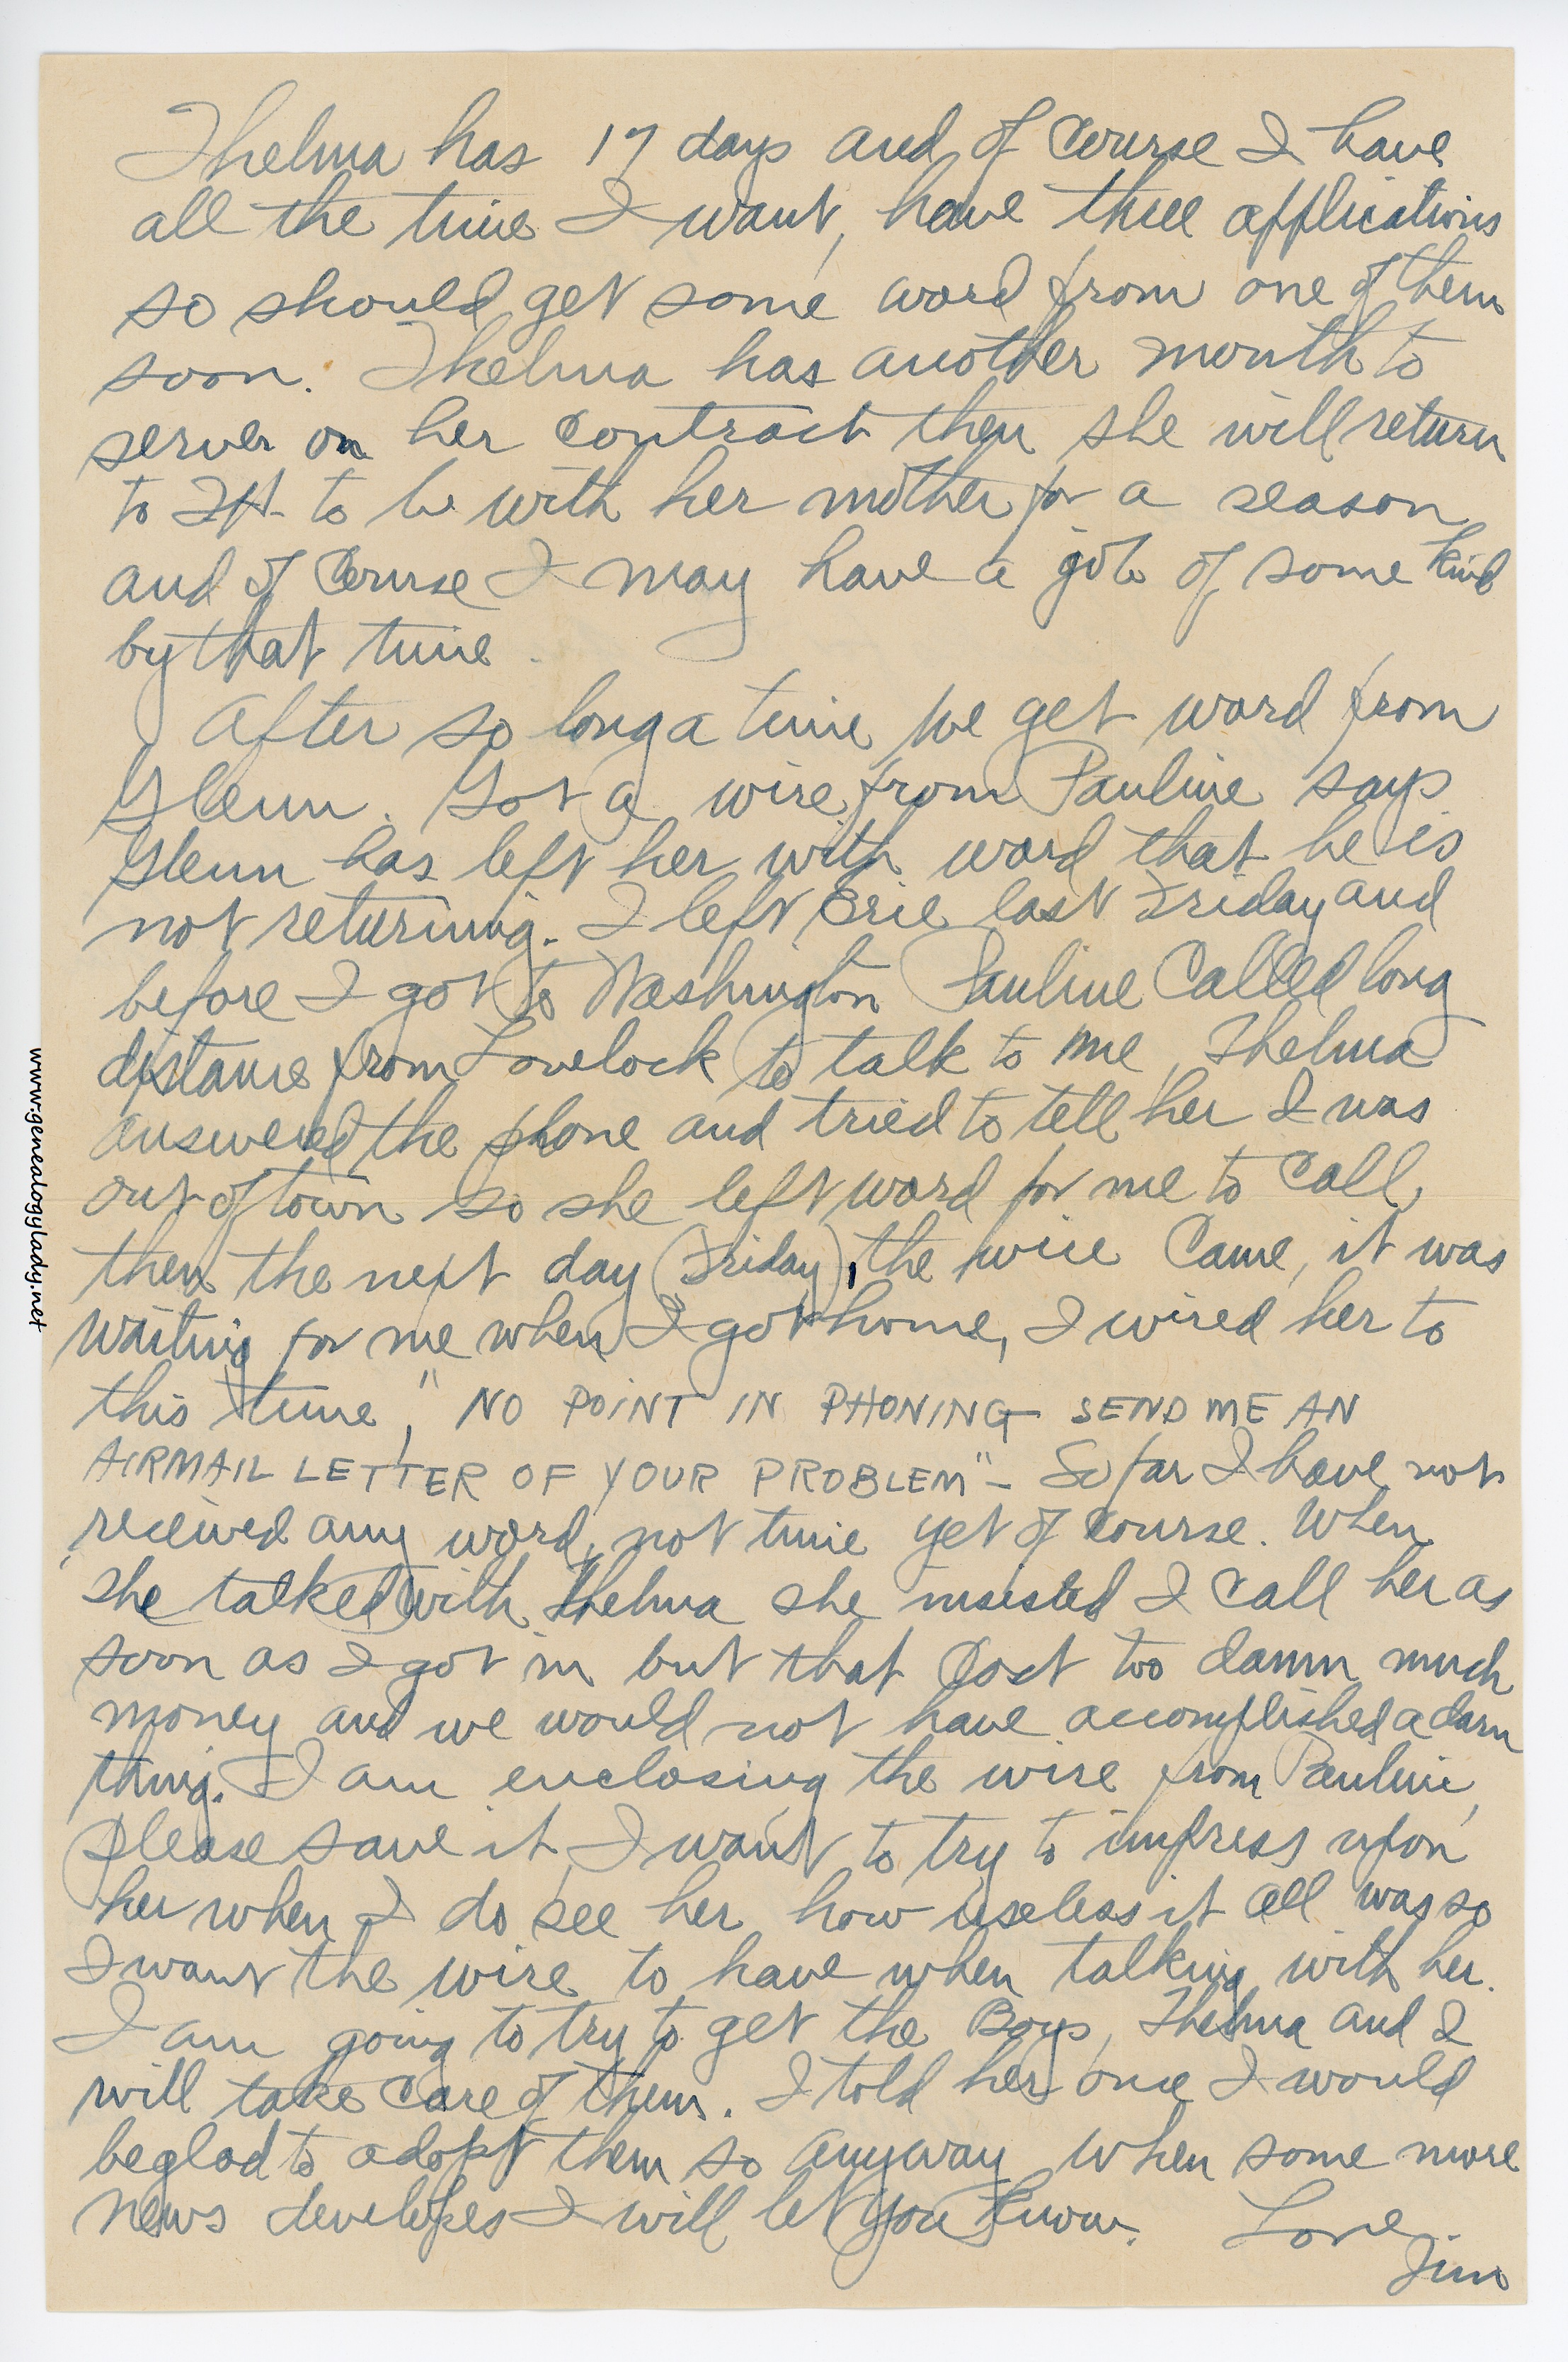 Thelma has 17 days and of course I have
all the time I want, have three applications
so should get some word from one of them
soon. Thelma has another month to
server on her contract then she will return
to to be with her mother for a season
and of course I may have a job of some kind
by that time.
After so long a time we get word from
Glenn. Got a wire from Pauline says
Glenn has left her with word that he is
not returning. I left Erie last Friday and
before I got to Washington Pauline called long
distance from Lovelock to talk to me, Thelma
answered the phone and tried to tell her I was
out of town so she left word for me to call,
then the next day (Friday), the wire came, it was
waiting for me when I got home, I wired her to
this tune, "NO POINT IN PHONING SEND ME AN
AIRMAIL LETTER OF YOUR PROBLEM" - So far I have not
received any word, not time yet of course. When
she talked with Thelma she insisted I call her as
soon as I got in but that cost too damn much
money and we would not have accomplished a darn
thing. I am enclosing the wire from Pauline,
please save it, I want to try to impress upon
her when I do see her how useless it all was so
I want the wire to have when talking with her.
I am going to try to get the Boys, Thelma and I
will take care of them. I told her once I would
be glad to adopt them so anyway when some more
news developes I will let you know. Love
Jim
www.genealogylady.net